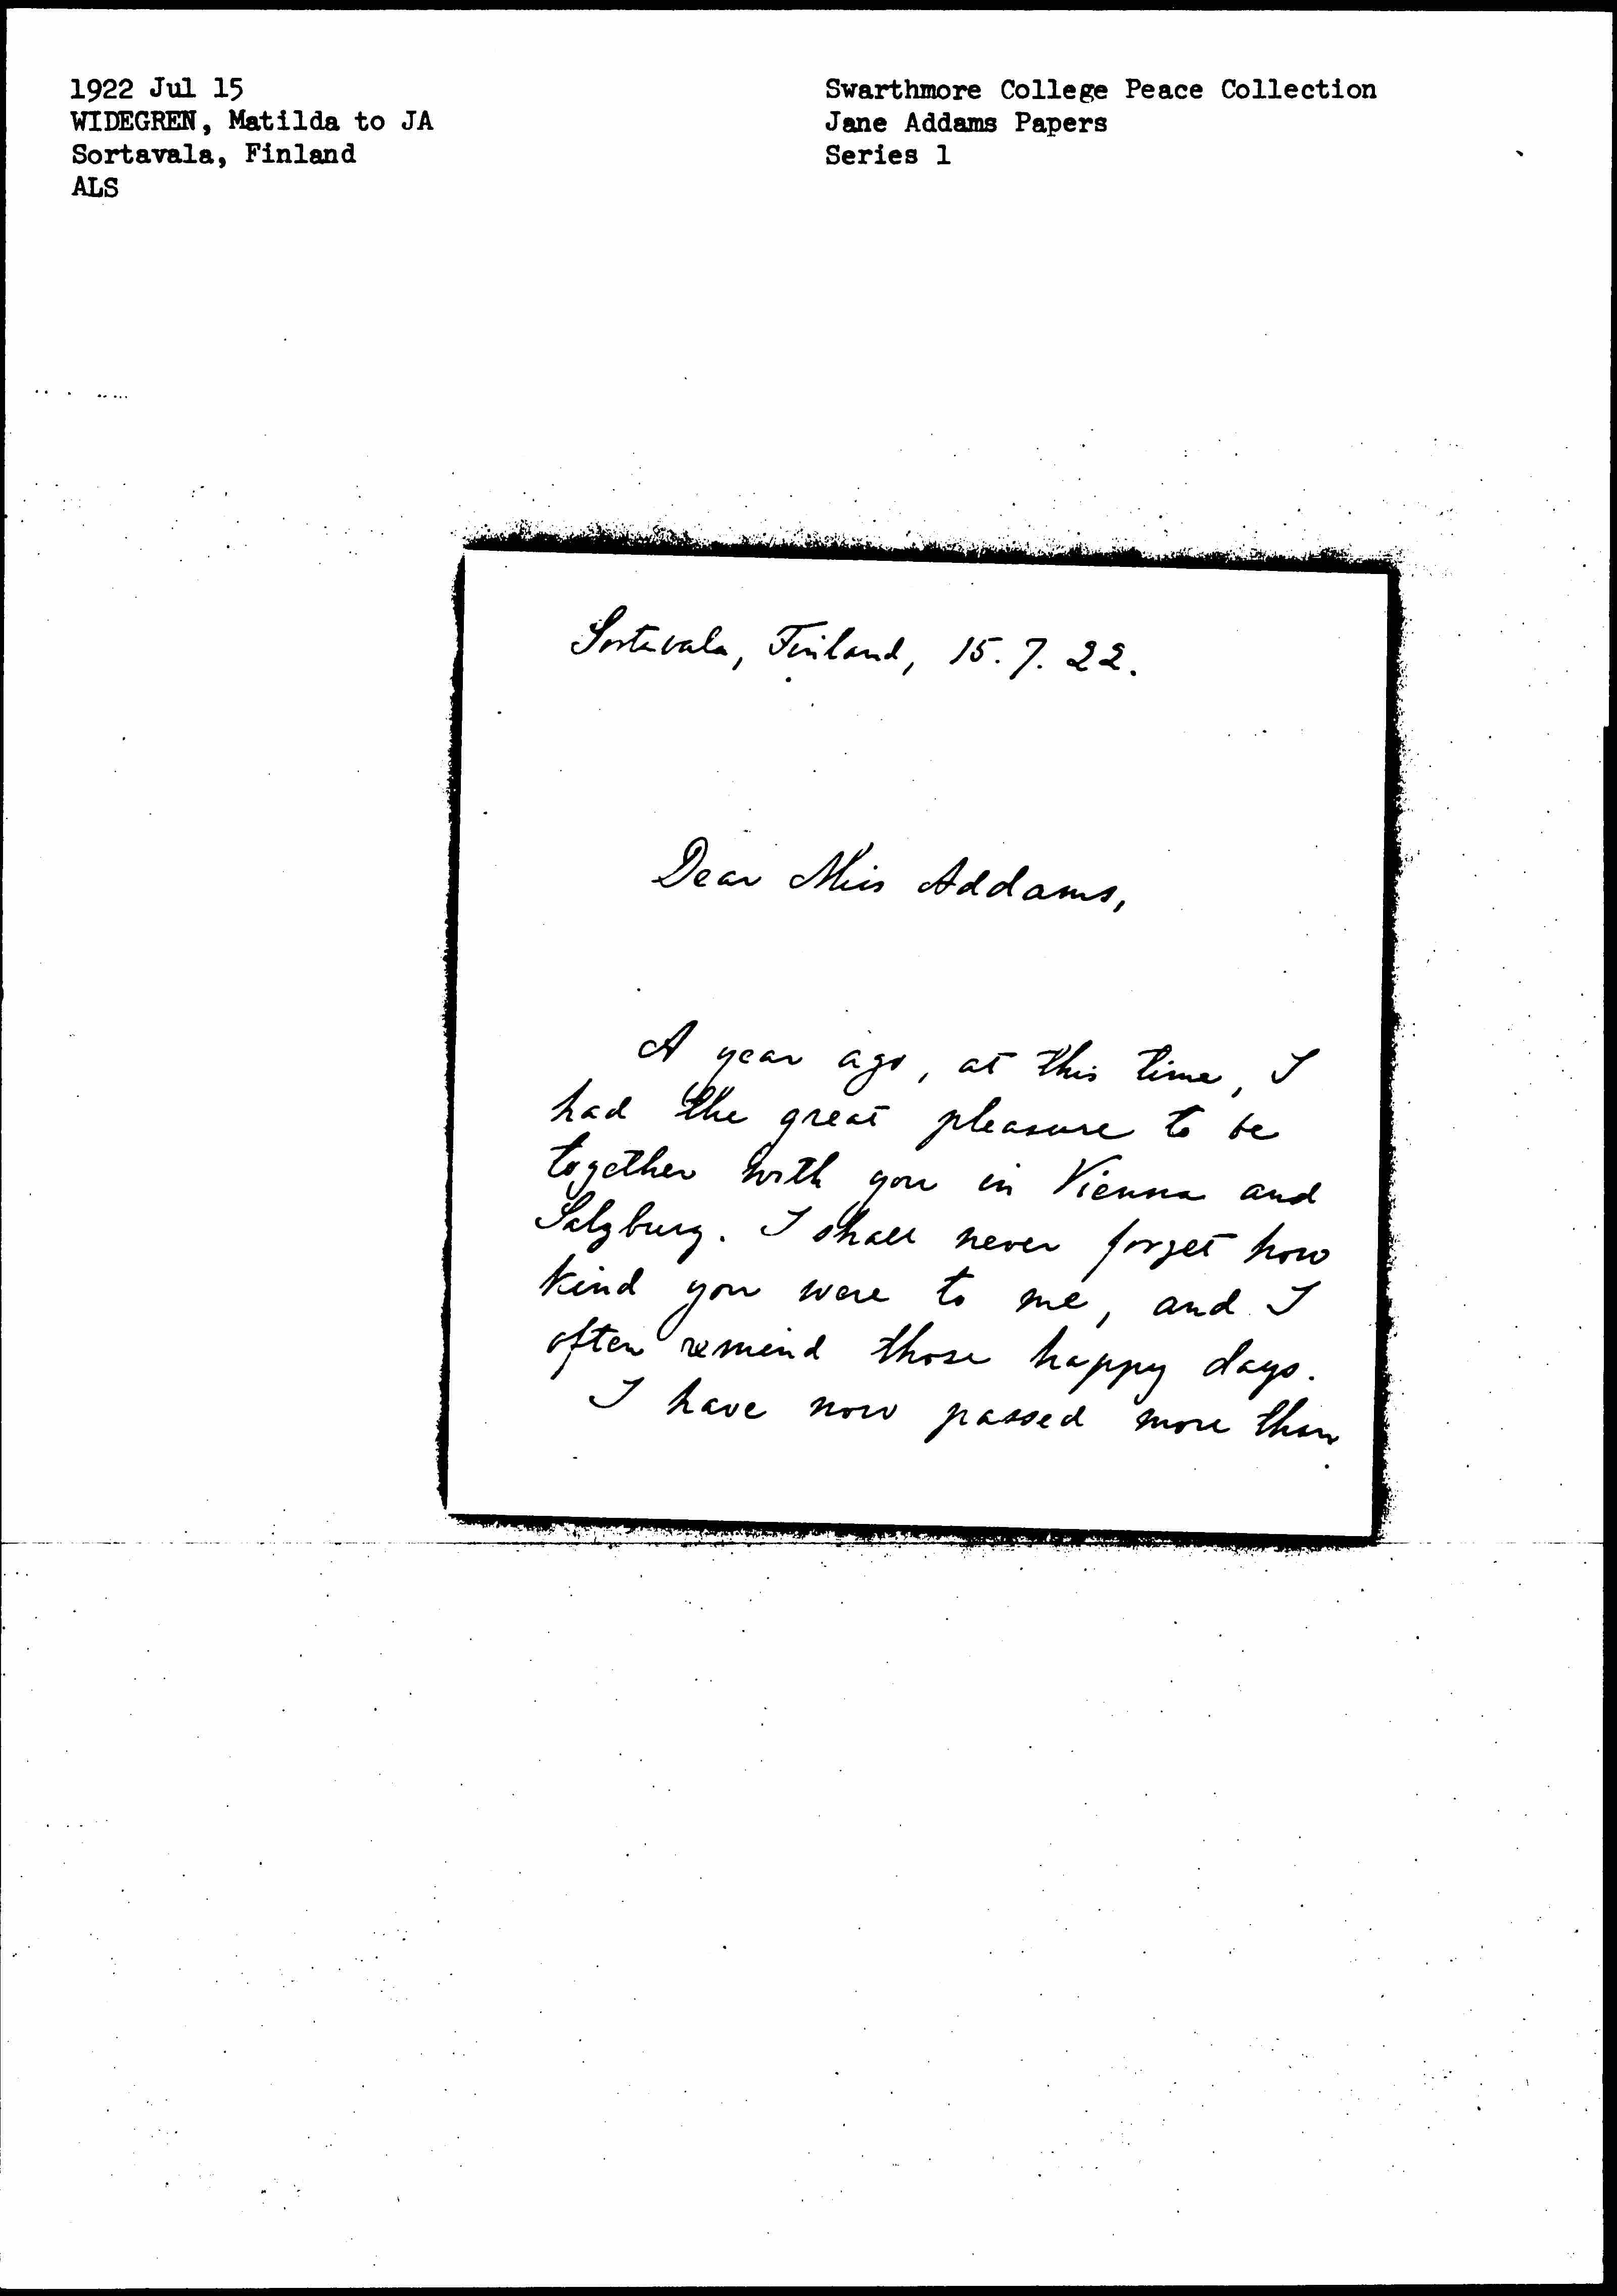 1922 Jul 15
WIDEGREN, Matilda to JA
Sortavala, Finland
ALS
Swarthmore College Peace Collection
Jane Addams Papers
Series 1
Sortavala, Finland, 15. 7. 22.
Dear Miss Addams,
A year ago, at this time, I
had the great pleasure to be
together with you in Vienna and
Salzburg. I shall never forget how
kind you were to me, and I
often remind those happy days.
I have now passed more than